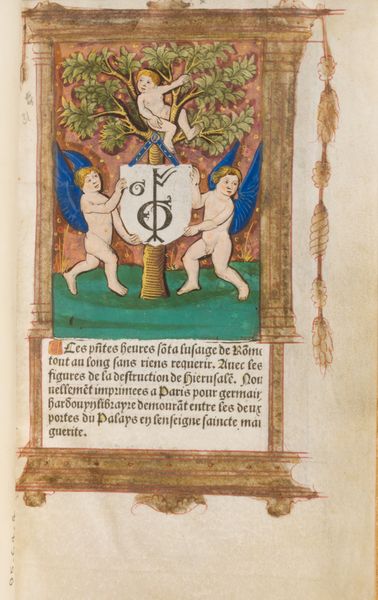 Ces p̃ñtes heures sõt a lusaige de Rõme
tout au long sans riens requerir. Auec les
figures de la destruction de Hierusalẽ. Nou
uellemẽt imprimees a Paris pour germain
hardouyn librayre demourãt entre les deux
portes du Palays en lenseigne saincte mar
guerite.